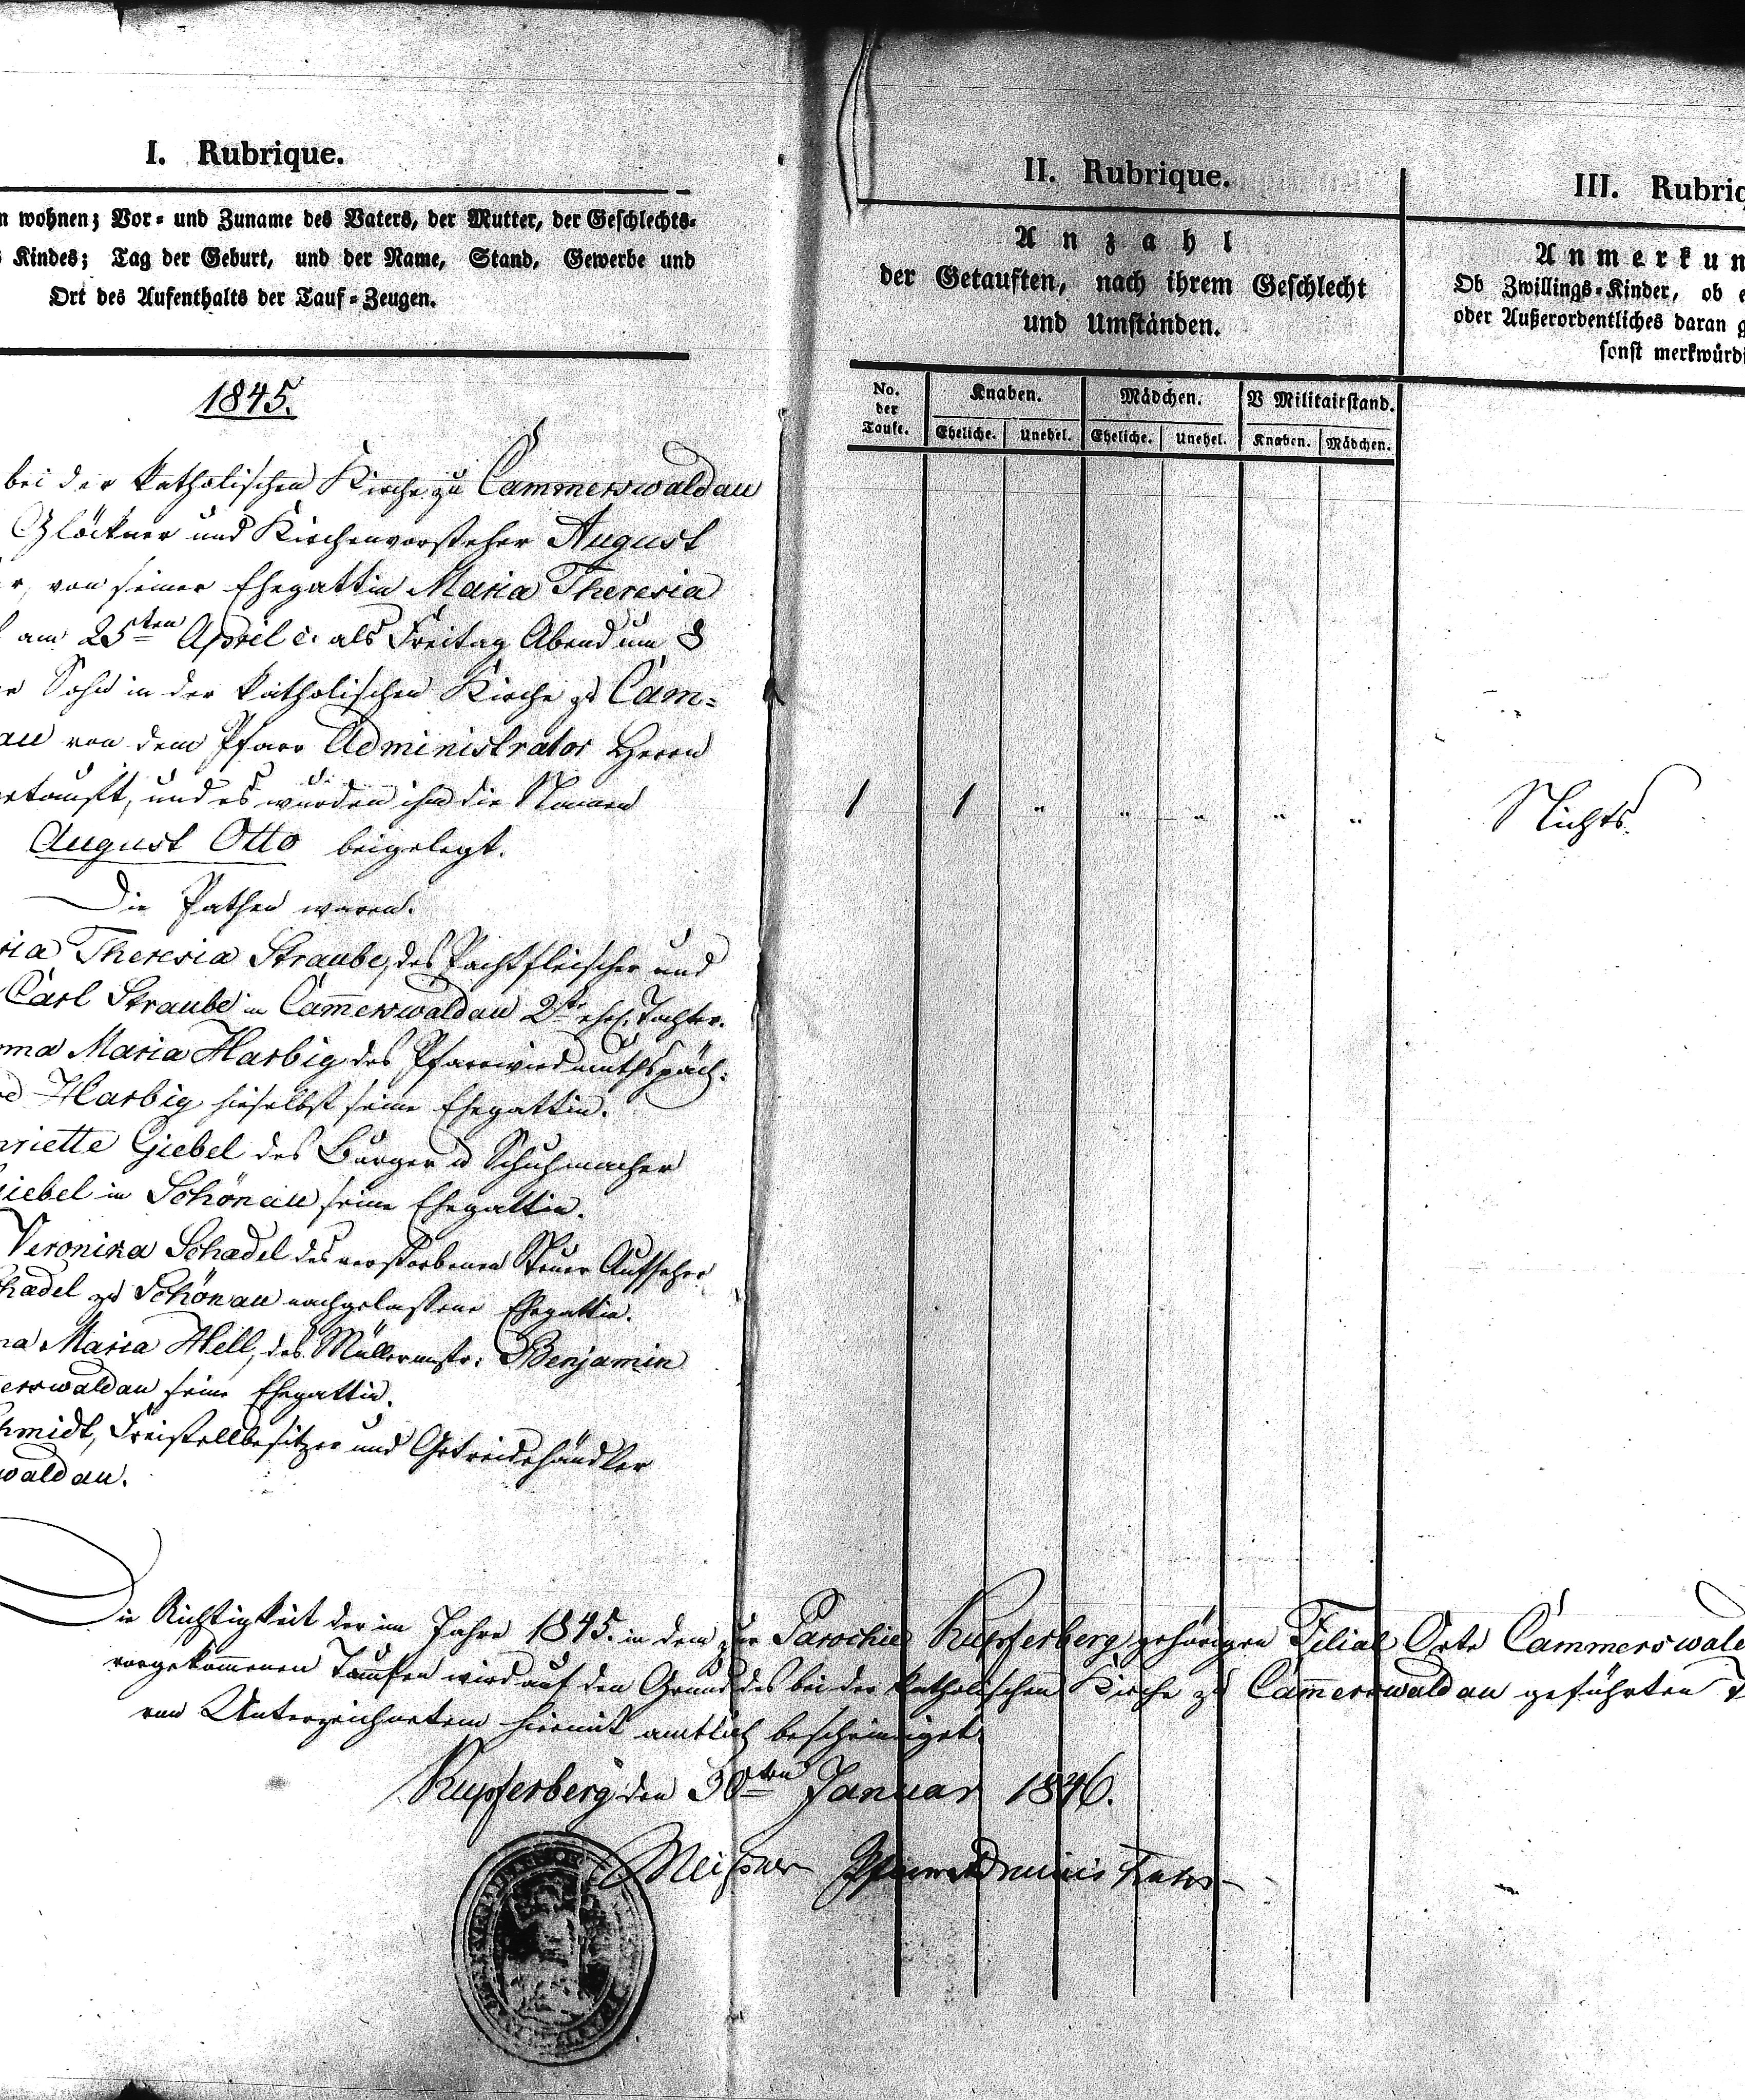 I. Rubrique.
n wohnen; Vor- und Zuname des Vaters, der Mutter, der Geschlechts-
Kindes; Tag der Geburt, und der Name, Stand, Gewerbe und
Ort des Aufenthalts der Tauf-Zeugen.
1845.
bei der katholischen Kirche zu Cammerswaldau
Glöckner und Kirchenvorsteher August
r, von seiner Ehegattin Maria Theresia
am 25ten April c. als Freitag Abend um 8
r Sohn in der katholischen Kirche zu Cam=
au von dem Pfarr Administrator Herrn
etauft, und es wurden ihm die Namen
August Otto beigelegt.
Die Pathen waren.
ria Theresia Straube, des Pachtfleischer und
Carl Straube in Cam̄erswaldau 2te ehel. Tochter.
nna Maria Harbig des Pfarrwiedmuthspäch=
Harbig hieselbst seine Ehegattin.
nriette Giebel des Bürger u Schuhmacher
iebel in Schönau seine Ehegattin.
Veronika Schadel des verstorbenen Steuer Aufseher
hadel zu Schönau nachgelassene Ehegattin.
na Maria Hell, des Müllermstr. Benjamin
erswaldau seine Ehegattin.
hmidt, Freistellbesitzer und Getreidehändler
waldau.
II. Rubrique.
Anzahl
der Getauften, nach ihrem Geschlecht
und Umständen.
No. der Taufe.
Knaben. Mädchen. V Militairstand.
Eheliche. Unehel. Eheliche. Unehel. Knaben. Mädchen.
1 1 " " " " "
III. Rubriq
Anmerkun
Ob Zwillings-Kinder, ob e
oder Außerordentliches daran g
sonst merkwürdi
Nichts.
Die Richtigkeit der im Jahre 1845. in dem zur Parochie Kupferberg gehörigen Filial Orte Cammerswald
vorgekom̄enen Taufen wird auf den Grund des bei der katholischen Kirche zu Cam̄erswaldau geführten T
von Unterzeichnetem hiermit amtlich bescheiniget.
Kupferberg den 30ten Januar 1846.
Meißner Pfarradministrator